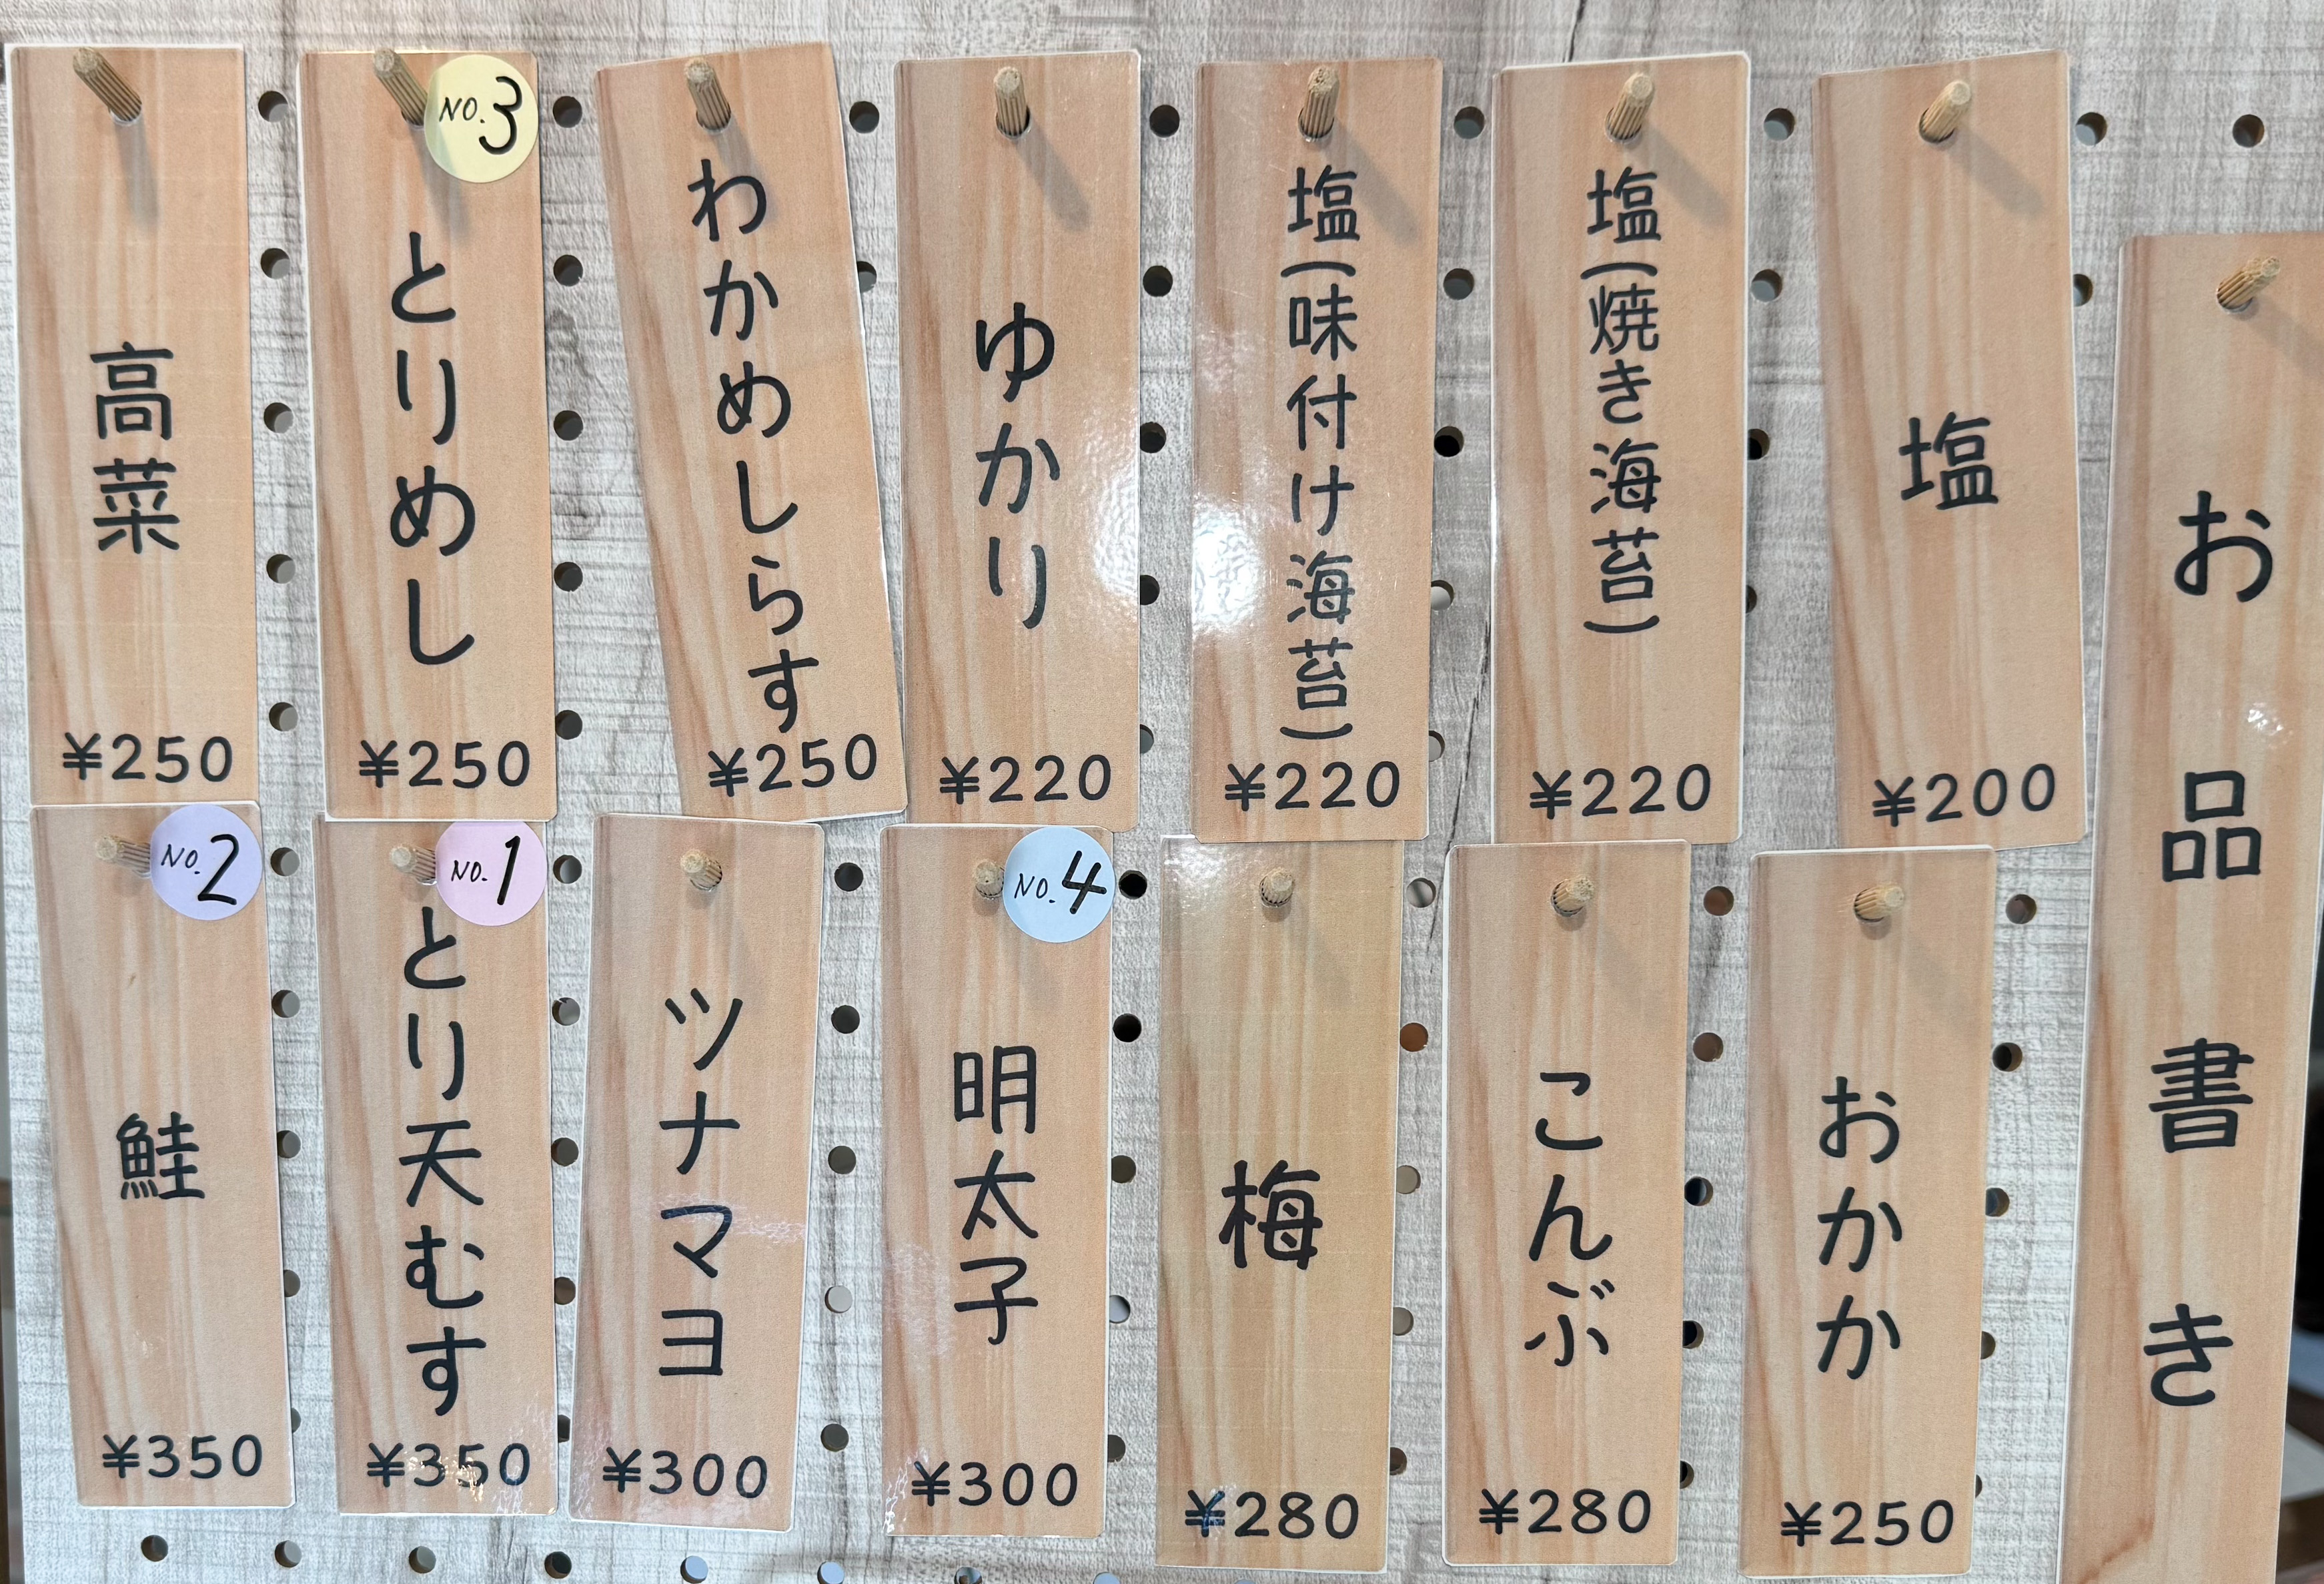 お品書き
塩
¥200
塩(焼き海苔)
¥220
塩(味付け海苔)
¥220
ゆかり
¥220
わかめしらす
¥250
NO.3
とりめし
¥250
高菜
¥250
おかか
¥250
こんぶ
¥280
梅
¥280
NO.4
明太子
¥300
ツナマヨ
¥300
NO.1
とり天むす
¥350
NO.2
鮭
¥350